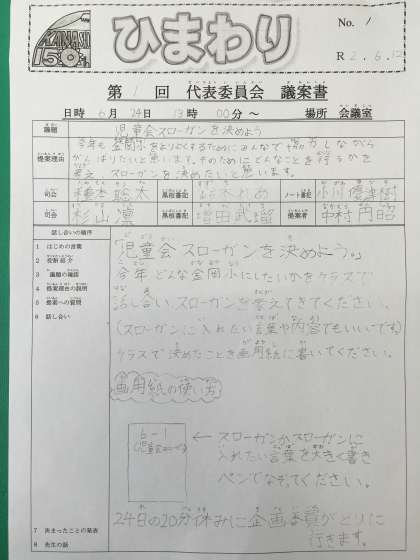 KANASHI
150th
ひまわり
No. 1
R 2.6.12
第 1 回 代表委員会 議案書
日時 6月 24日 13時 00分～ 場所 会議室
議題 児童会スローガンを決めよう
提案理由 今年も金岡小をよりよくするためにみんなで協力しながら
がんばりたいと思います。そのためにどんなことを行うかを
考え、スローガンを決めたいと思います。
司会 黒板書記 ノート書記
司会 杉山凛 黒板書記 増田武瑠 提案者 中村円昭
話し合いの順序
1 はじめの言葉
2 役割紹介
3 議題の確認
4 提案理由の説明
5 提案への質問
6 話し合い
「児童会スローガンを決めよう。」
今年どんな金岡小にしたいかをクラスで
話し合い、スローガンを考えてきてください。
(スローガンに入れたい言葉や内容でもいいです)
クラスで決めたことを画用紙に書いてください。
画用紙の使い方
6-1
← スローガンかスローガンに
入れたい言葉を大きく書き
ペンでなぞってください。
24日の20分休みに企画委員がとりに
行きます。
7 決まったことの発表
8 先生の話